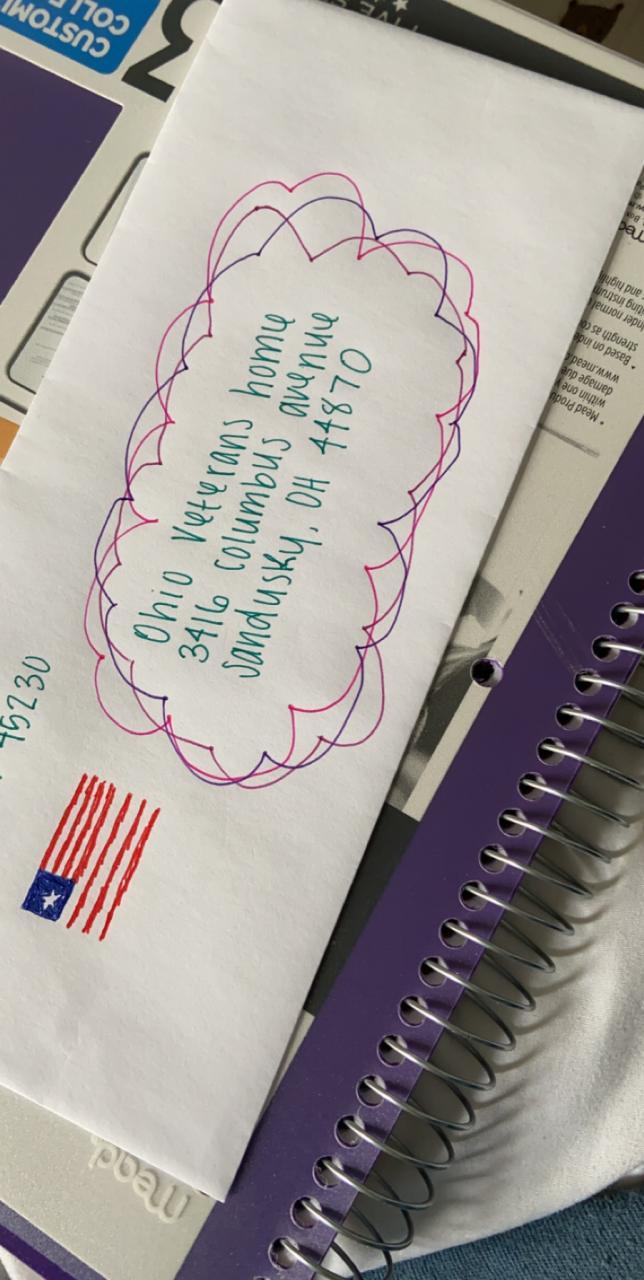 Ohio Veterans home
3416 columbus avenue
Sandusky, OH 44870
45230
CUSTOMI
COLLE
3
FIVE S
mead
Mead Produ
within one y
damage due
www.mead.c
• Based on inde
strength as co
under normal
iting instrum
and highli